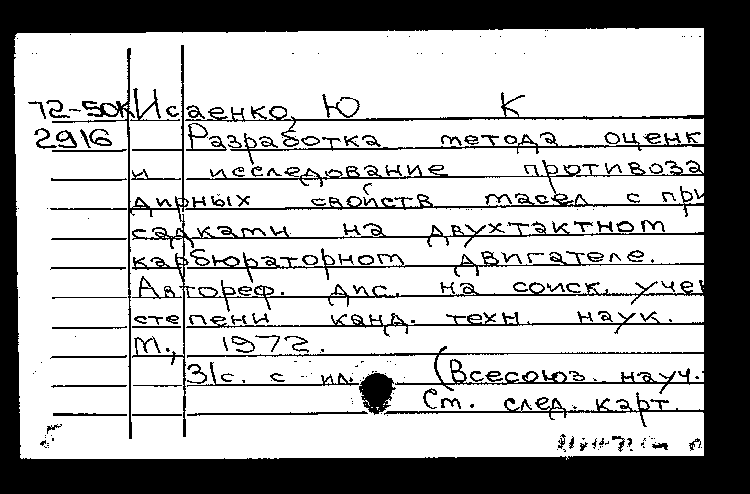 72-50К Исаенко, Ю К
2916 Разработка метода оценк
и исследование противоза
дирных свойств масел с при
садками на двухтактном
карбюраторном двигателе.
Автореф. дис. на соиск. учен
степени канд. техн. наук.
М., 1972.
31с. с ил. (Всесоюз. науч.
См. след. карт.
5